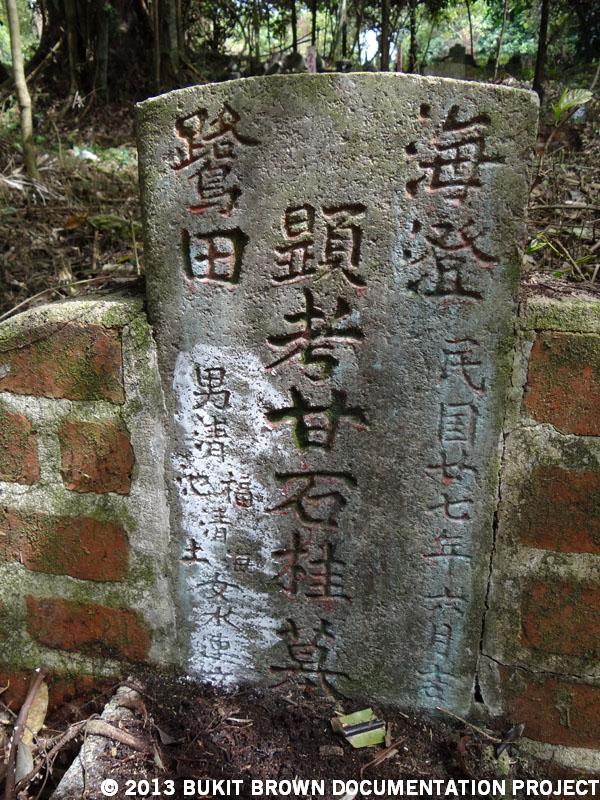 海澄
民国廿七年六月吉
顯考甘石桂墓
鷺田
福
男清清女水連
池土